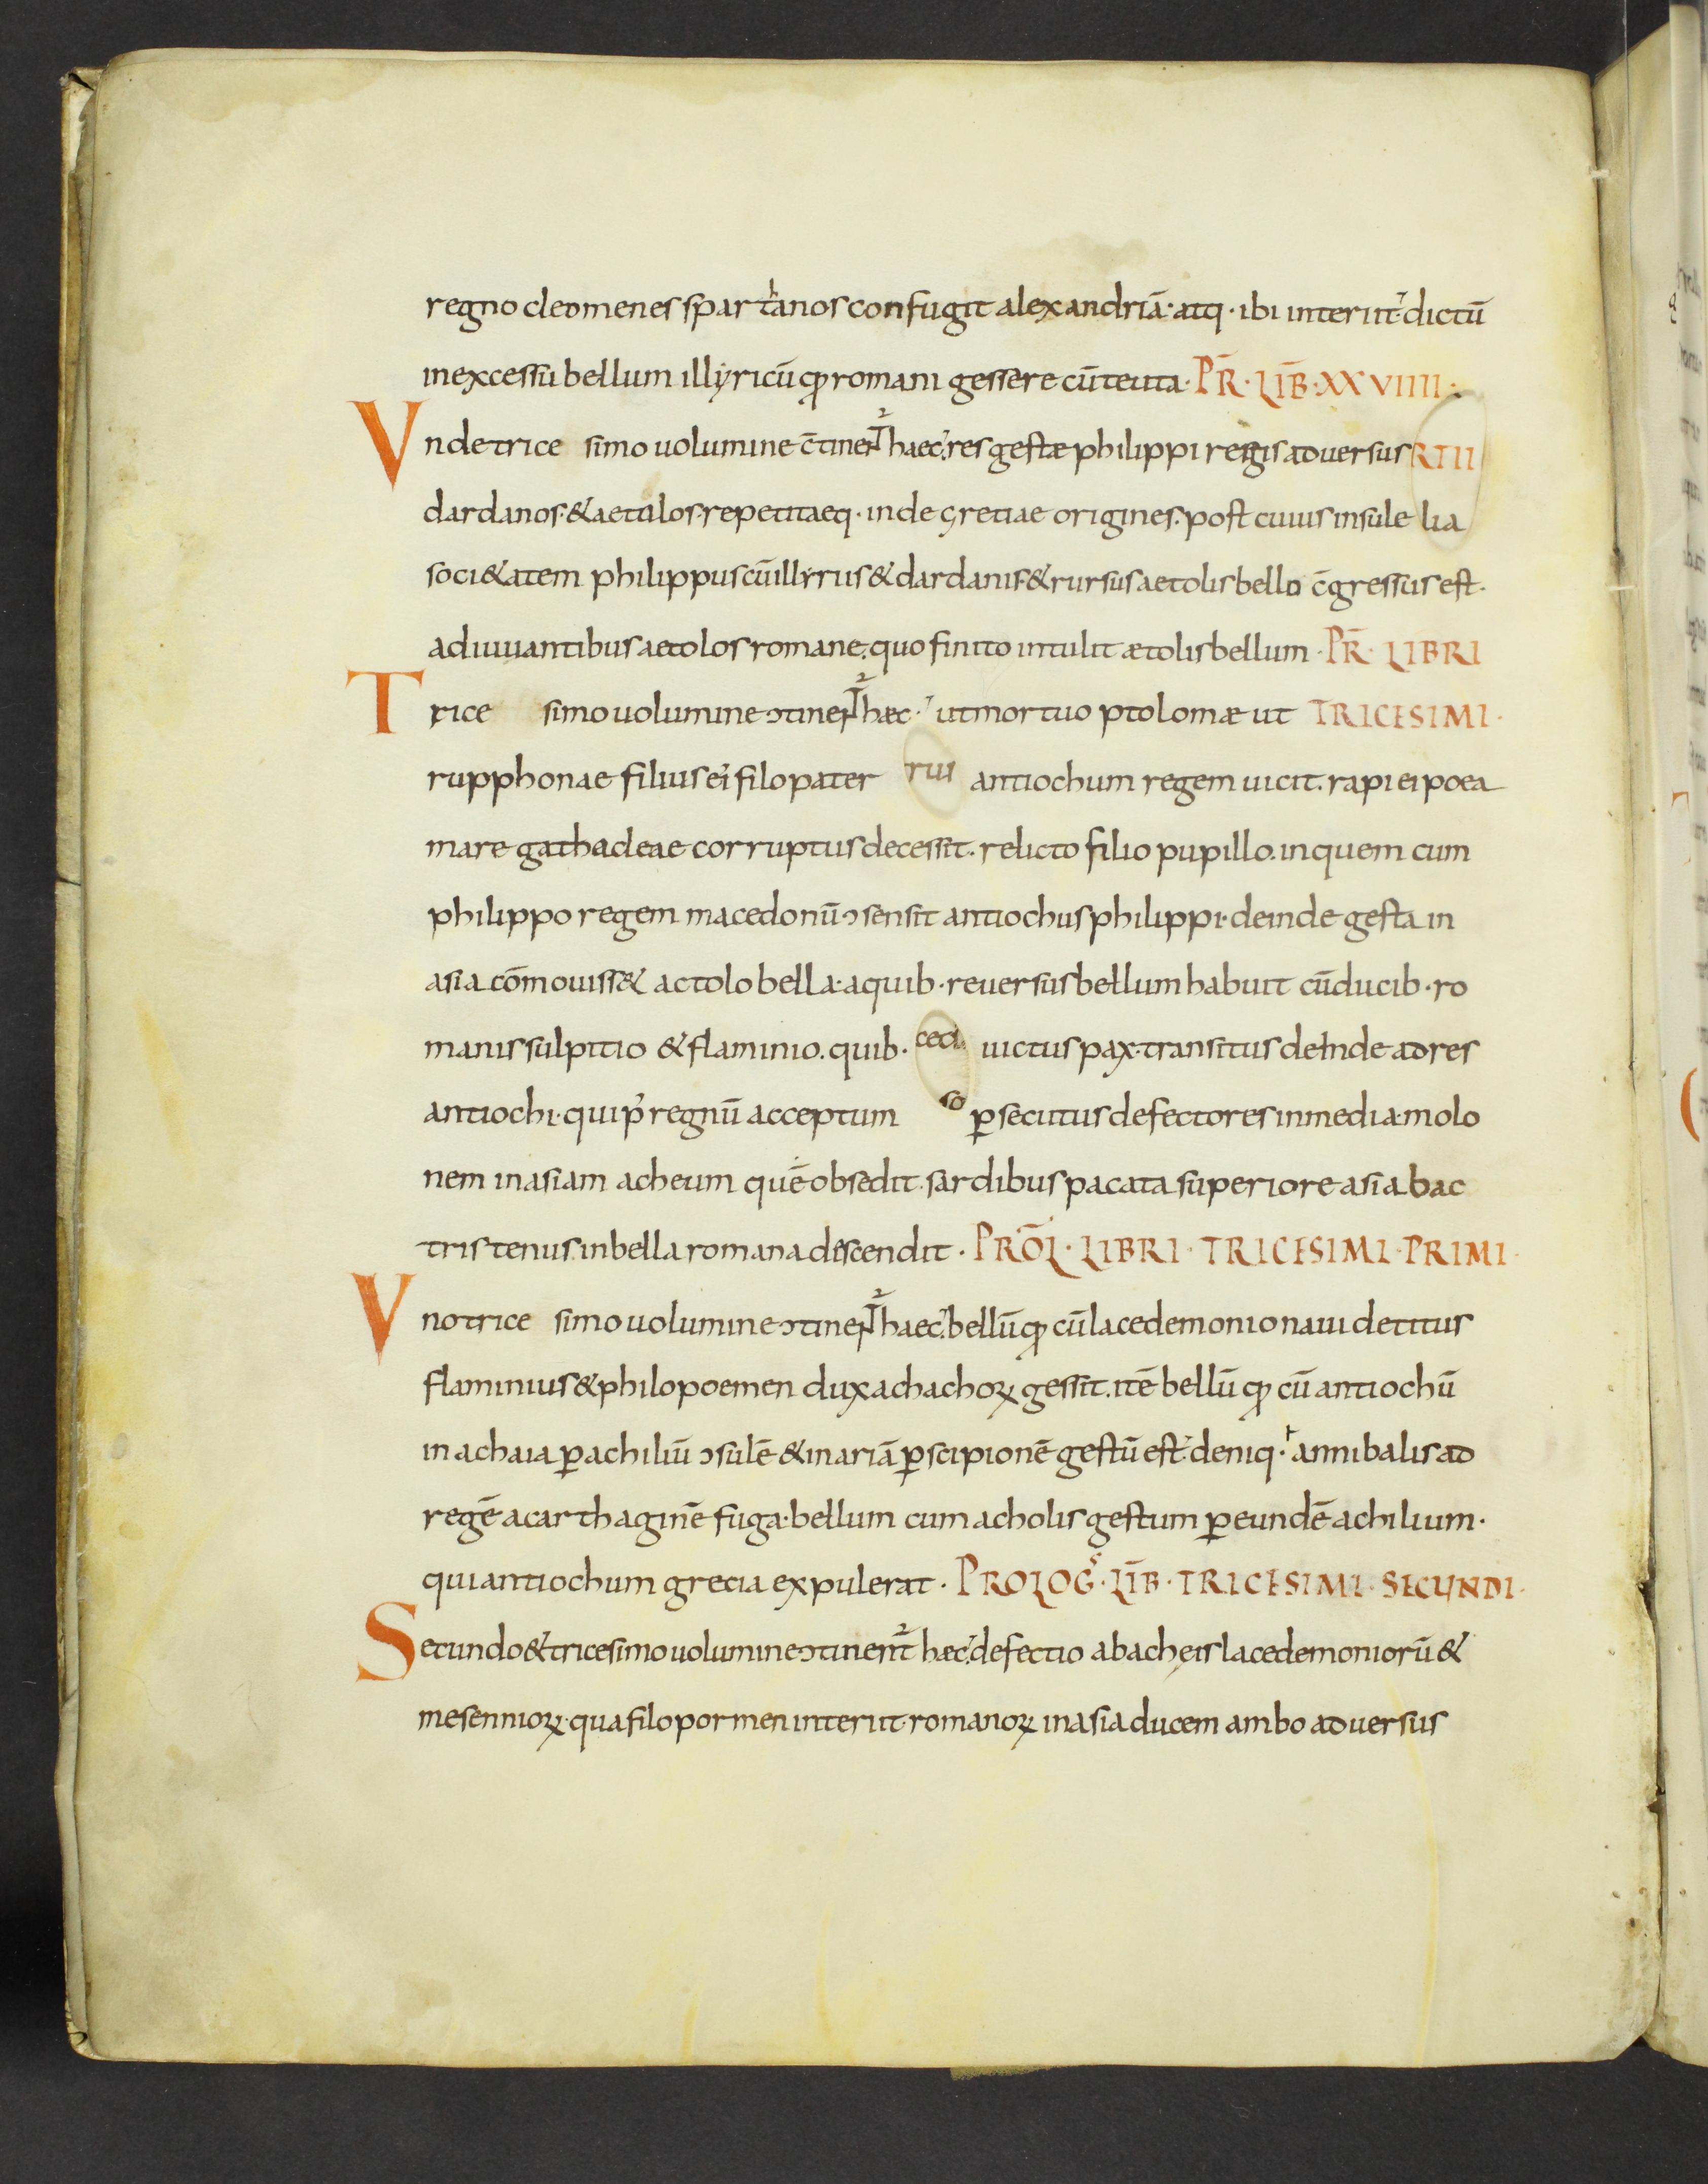 regno cleomenes spartanos confugit alexandriā· atq· ibi interiit· dictū
inexcessu bellum illyricū qđ romani gessere cū teuta· PR̄· LIB̄· XXVIIII·
Vndetrice simo uolumine c̄tinent̄ haec· res gestæ philippi regis aduersus RTII
dardanos· & aetulos· repetitaeq· inde çretiae origines· post cuius insule lia
soci&atem philippus cū illyrus & dardanis & rursus aetolis bello c̄gressus est·
adiuuantibus aetolos romane· quo finito intulit ætolis bellum· PR̄· LIBRI
Trice simo uolumine ↄtinent̄ hæc· ut mortuo ptolomæ ut TRICESIMI·
rupphonae filius ei filopater rui antiochum regem uicit· rapi ei poea
mare gathacleae corruptus decessit· relicto filio pupillo· in quem cum
philippo regem macedonū ↄsensit antiochus philippi· deinde gesta in
asia cōmouiss& actolo bella· a quib· reuersus bellum habuit cū ducib· ro
manis sulpitio & flaminio· quib· ceci uictus pax· transitus deinde ad res
antiochi· qui p̄ regnū acceptum so ꝑsecutus defectores in media· molo
nem in asiam acheum quē obsedit· sardibus pacata superiore asia bac
tris tenus· in bella romana descendit· PROL̄· LIBRI· TRICESIMI· PRIMI·
Vnotrice simo uolumine ↄtinent̄ haec· bellū qđ cū lacedemonio naui de titus
flaminius & philopoemen dux achachoꝝ gessit· itē bellū qđ cū antiochū
in achaia ꝑ achiliū ↄsulē & in ariā ꝑ scipionē gestū est· deniq· annibalis ad
regē a carthaginē fuga· bellum cum acholis gestum ꝑ eundē achilium·
qui antiochum grecia expulerat· PROLOG· LIB̄· TRICESIMI· SECUNDI·
Secundo & tricesimo uolumine ↄtinent̄ hæc· defectio ab acheis lacedemoniorū &
mesennioꝝ· qua filopormen interiit· romanoꝝ in asia ducem ambo aduersus